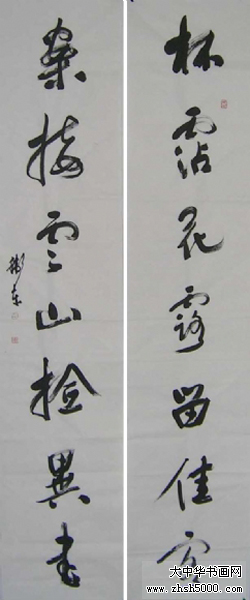 杯霑花露留佳客
案接雲山檢異書
大中华书画网
www.zhsh5000.com